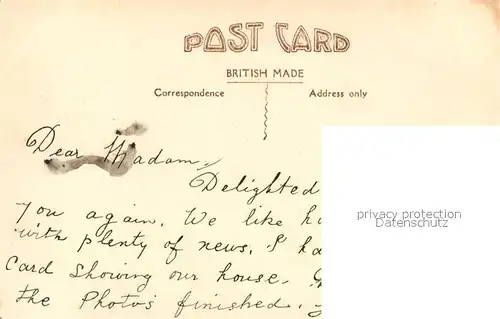 POST CARD
BRITISH MADE
Correspondence
Address only
Dear Madam,
Delighted
you again. We like
with plenty of news. I
Card showing our house.
the Photo's finished.
privacy protection
Datenschutz